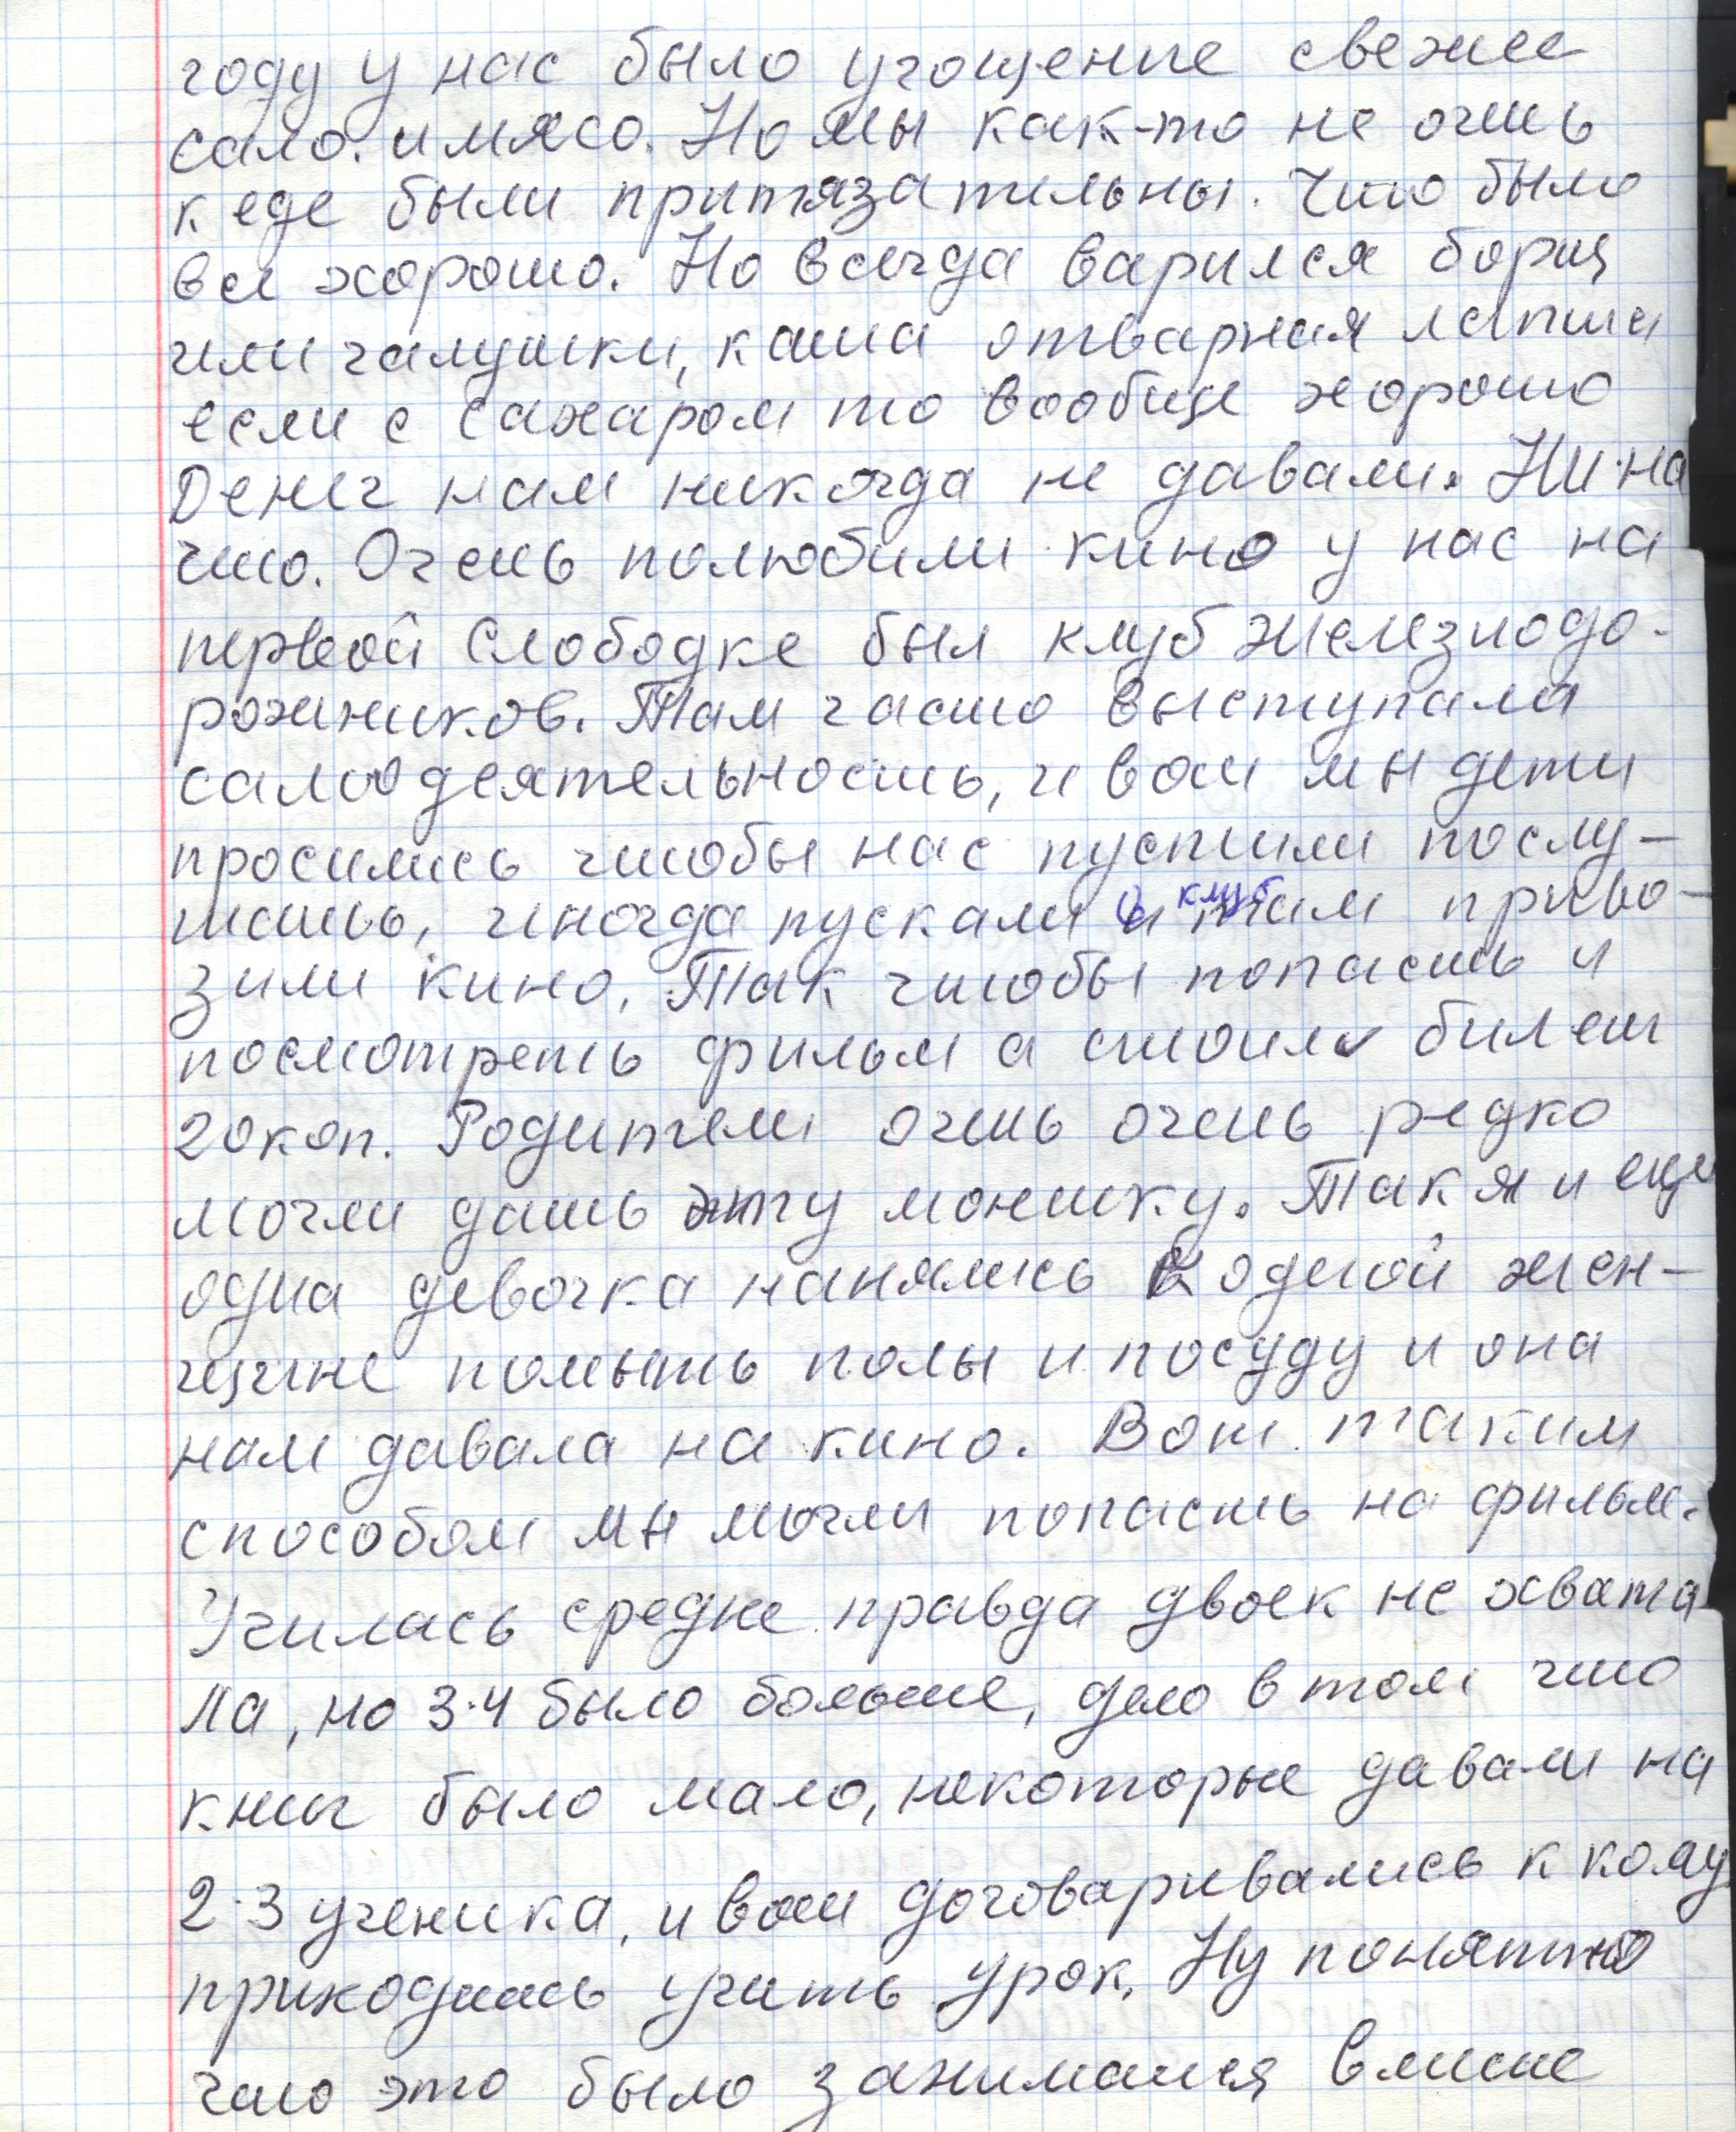 году у нас было угощение свежее
сало. и мясо. Но мы как-то не очень
к еде были притязательны. Что было
все хорошо. Но всегда варился борщ
или галушки, каша отварная лапша
если с сахаром то вообще хорошо
Денег нам никогда не давали. Ни на
что. Очень полюбили кино у нас на
первой Слободке был клуб железнодо-
рожников. Там часто выступала
самодеятельность, и вот мы дети
просились чтобы нас пустили послу-
шать, иногда пускали и там приво-
в клуб
зили кино. Так чтобы попасть и
посмотреть фильм а стоил билет
20 коп. Родители очень очень редко
могли дать эту монетку. Так я и еще
одна девочка нанялись к одной жен-
щине помыть полы и посуду и она
нам давала на кино. Вот таким
способом мы могли попасть на фильм.
Училась средне правда двоек не хвата
ла, но 3-4 было больше, дело в том что
книг было мало, некоторые давали на
2-3 ученика, и вот договаривались к кому
приходилось учить урок. Ну понятно
что это было заниматся